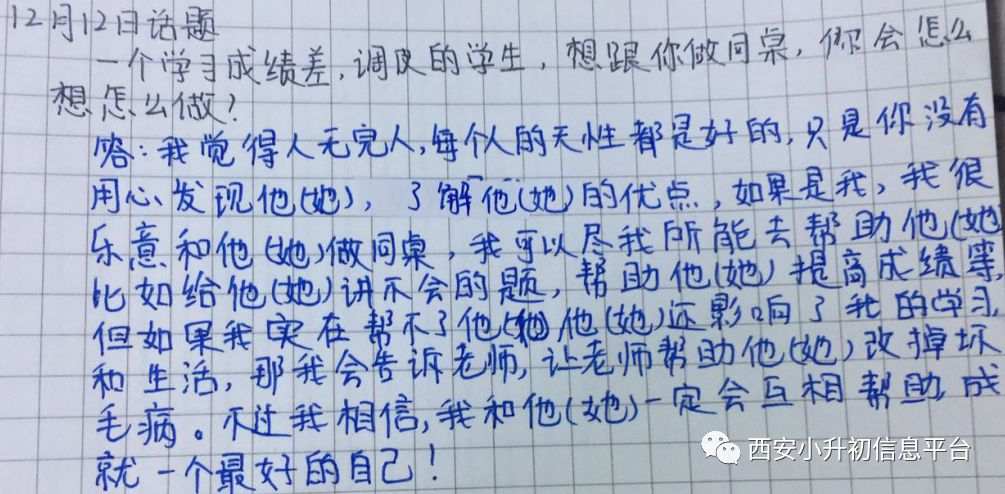 12月12日话题
一个学习成绩差,调皮的学生,想跟你做同桌,你会怎么
想怎么做?
答:我觉得人无完人,每个人的天性都是好的,只是你没有
用心发现他(她),了解他(她)的优点,如果是我,我很
乐意和他(她)做同桌,我可以尽我所能去帮助他(她
比如给他(她)讲不会的题,帮助他(她)提高成绩等
但如果我实在帮不了他(她)他(她)还影响了我的学习
和生活,那我会告诉老师,让老师帮助他(她)改掉坏
毛病。不过我相信,我和他(她)一定会互相帮助,成
就一个最好的自己!
西安小升初信息平台